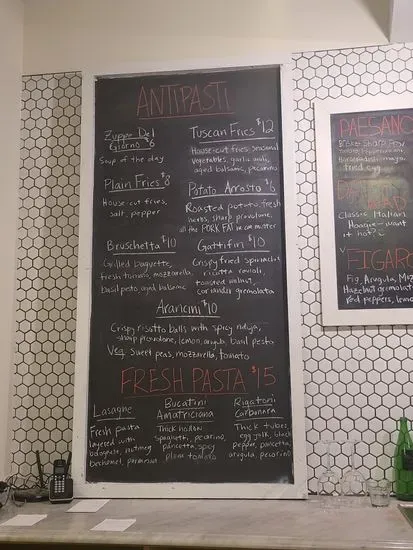 ANTIPASTI
Zuppa Del
Giorno $6
Soup of the day
Tuscan Fries $12
House-cut fries, seasonal
vegetables, garlic aioli,
aged balsamic, pecorino
Plain Fries $8
House-cut fries,
salt, pepper
Potato Arrosto $6
Roasted potato, fresh
herbs, sharp provolone,
all the PORK FAT in can matter
Bruschetta $10
Grilled baguette,
fresh tomato, mozzarella,
basil pesto, aged balsamic
Gattifiri $10
Crispy fried spinach
ricotta ravioli,
toasted walnut,
coriander gremolata
Arancini $10
Crispy risotto balls with spicy nduja,
sharp provolone, lemon, arugula, basil pesto
Veg. Sweet peas, mozzarella, tomato
FRESH PASTA $15
Lasagne
Fresh pasta
layered with
bolognese, nutmeg
bechamel, parmesan
Bucatini
Amatriciana
Thick hollow
Spaghetti, pecorino,
pancetta, spicy
plum tomato
Rigatoni
Carbonara
Thick tubes,
egg yolk, black
pepper, pancetta,
arugula, pecorino
PAESANO
Brisket, sharp Prov
Horseradish mayo
fried egg
Classic Italian
Hoagie - want
it hot?
FIGARO
Fig, Arugula,
Hazelnut gremolata
Red peppers,